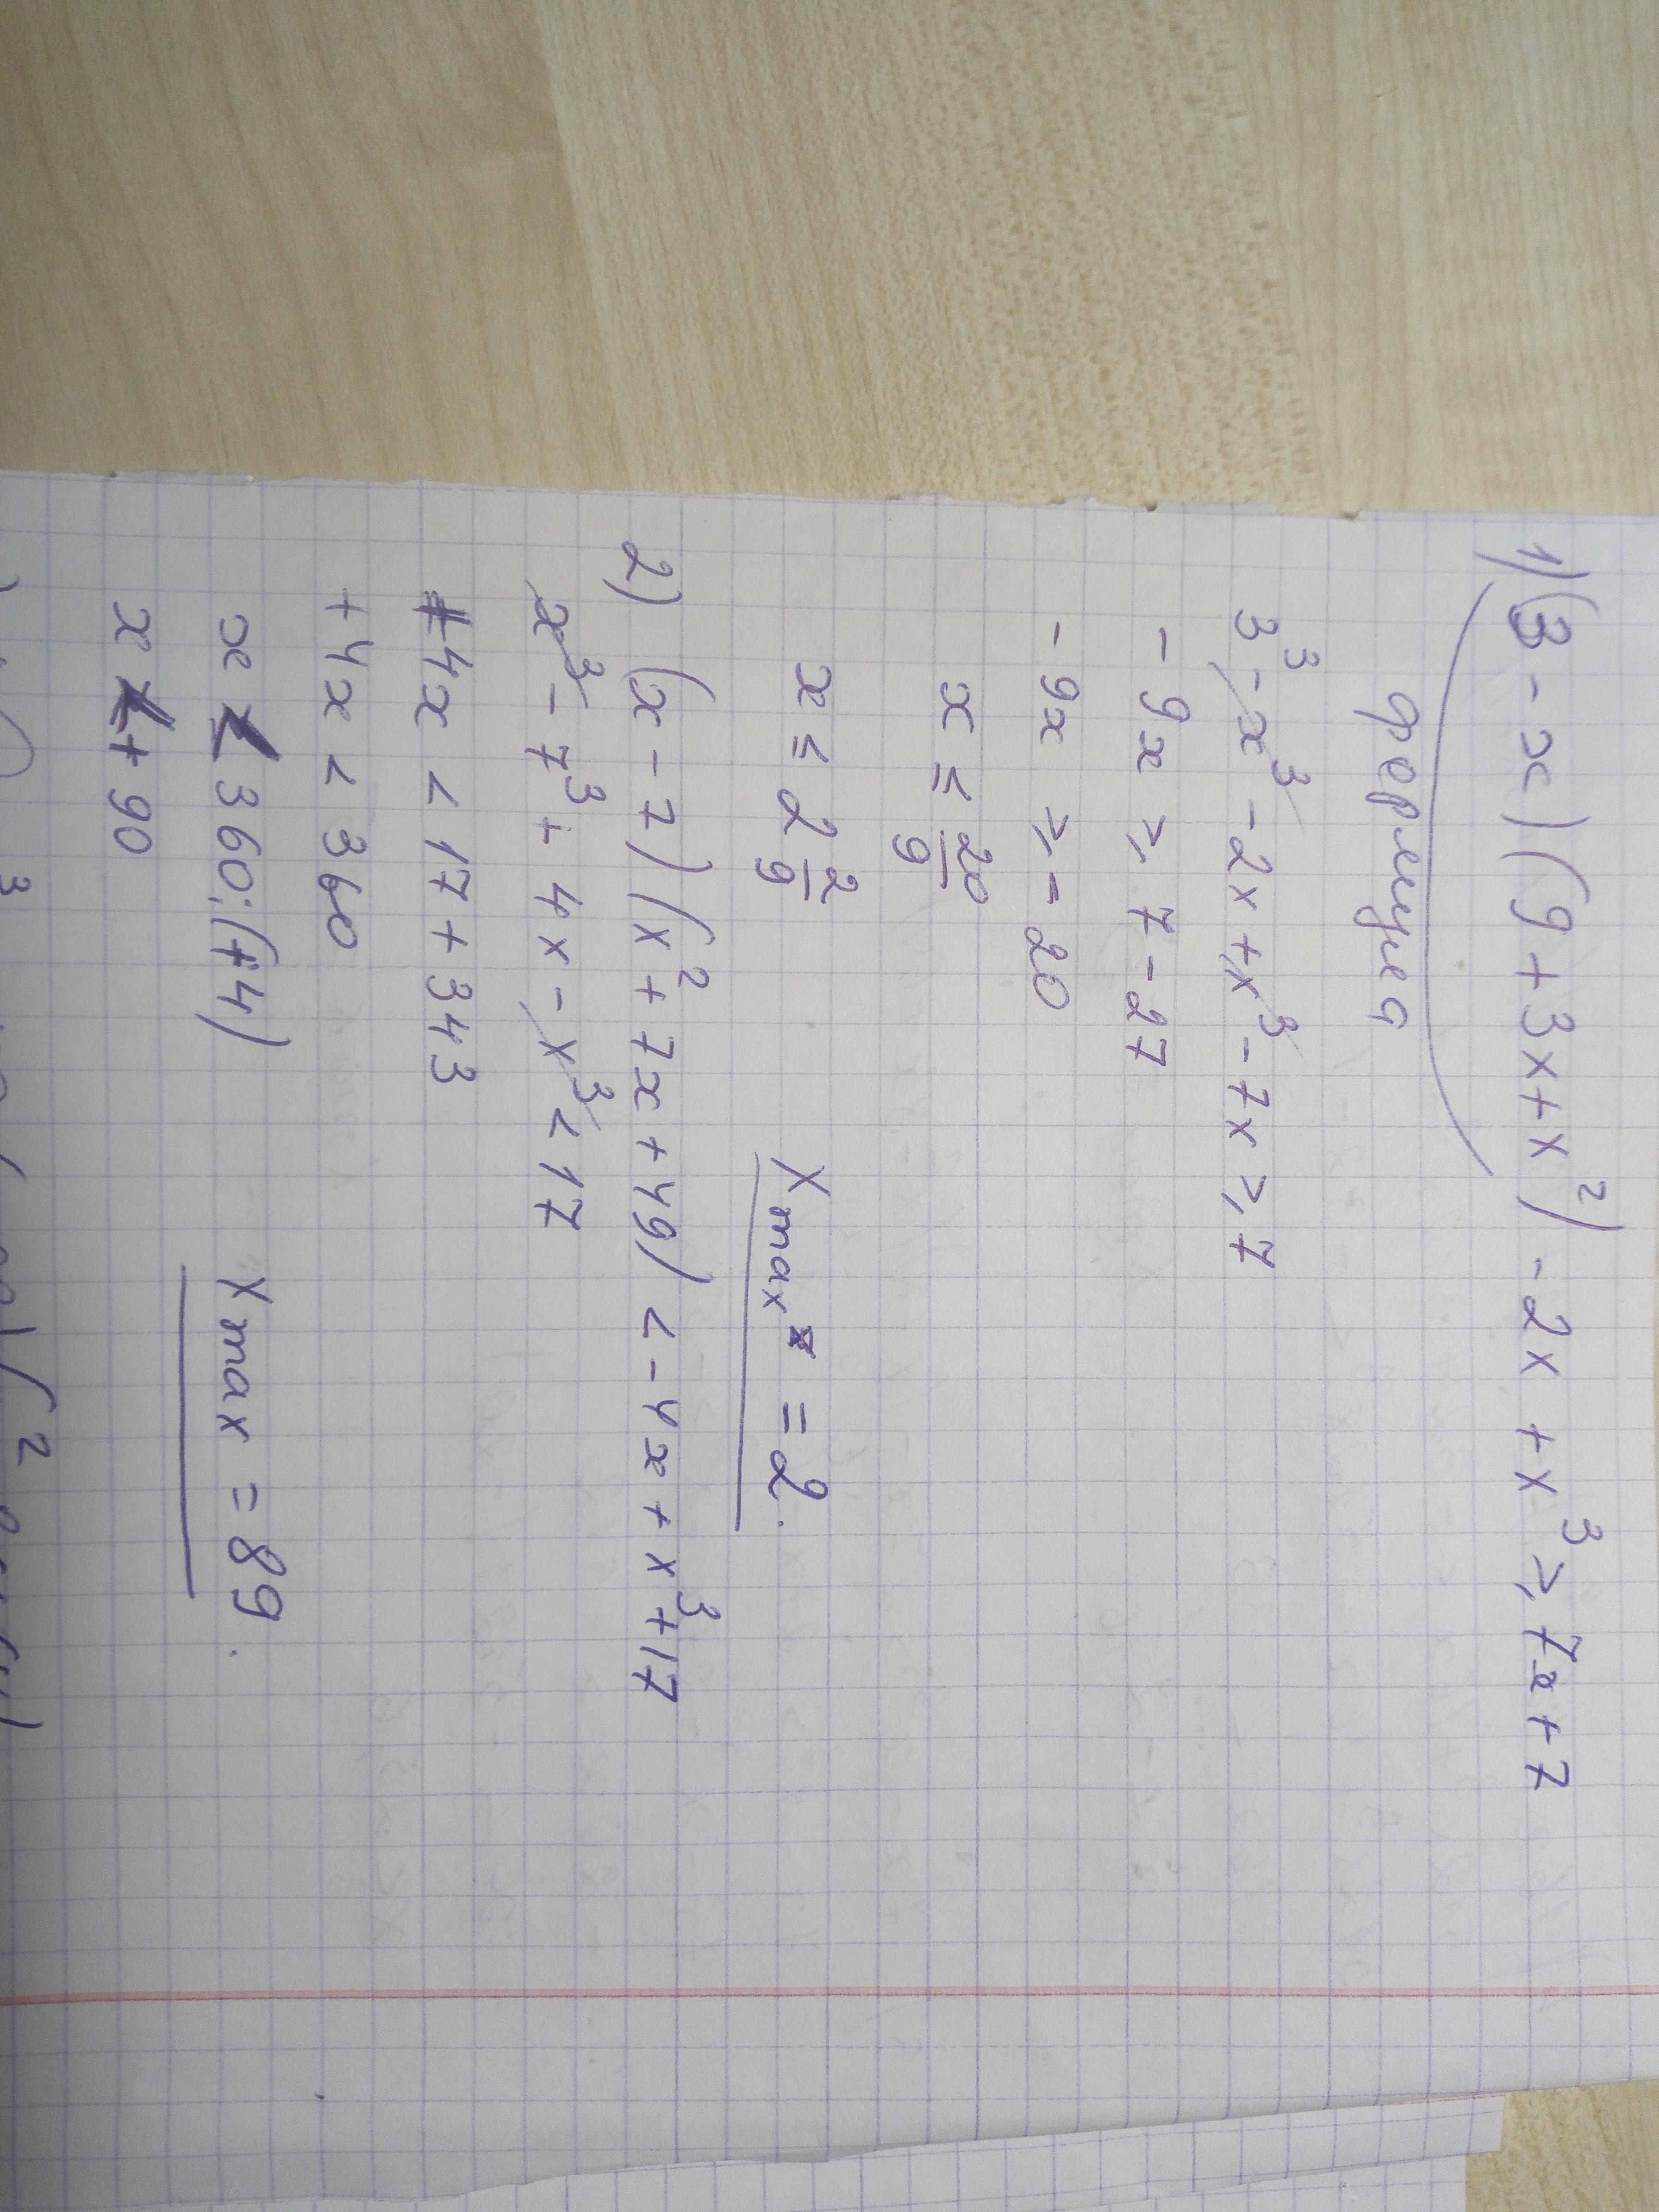 1) (3 - x) (9 + 3x + x²) - 2x + x³ ⩾ 7x + 7
формула
3³ - x³ - 2x + x³ - 7x ⩾ 7
- 9x ⩾ 7 - 27
- 9x ⩾ - 20
x ⩽ 20/9
x ⩽ 2 2/9
X max = 2.
2) (x - 7) (x² + 7x + 49) < - 4x + x³ + 17
x³ - 7³ + 4x - x³ < 17
4x < 17 + 343
+4x < 360
x < 360 : (+4)
x < + 90
X max = 89.